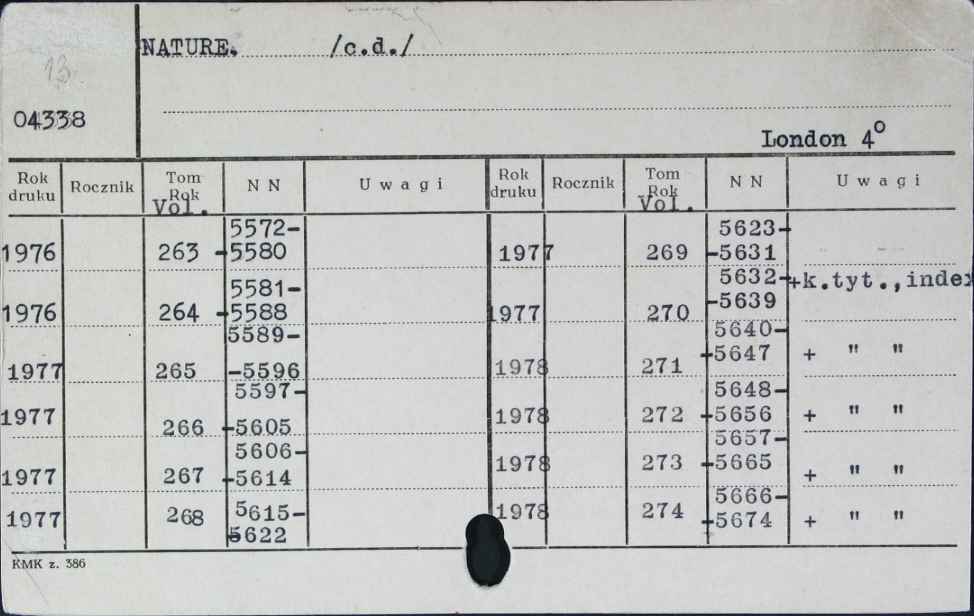 NATURE. /c.d./
13.
04338
London 4º
Rok druku Rocznik Tom Rok Vol. N N U w a g i Rok druku Rocznik Tom Rok Vol. N N U w a g i
1976 263 5572-
-5580
1976 264 5581-
-5588
1977 265 5589-
-5596
1977 266 5597-
-5605
1977 267 5606-
-5614
1977 268 5615-
5622
1977 269 5623-
-5631
1977 270 5632-
-5639 +k.tyt.,index
1978 271 5640-
-5647 + " "
1978 272 5648-
-5656 + " "
1978 273 5657-
-5665 + " "
1978 274 5666-
-5674 + " "
KMK z. 386